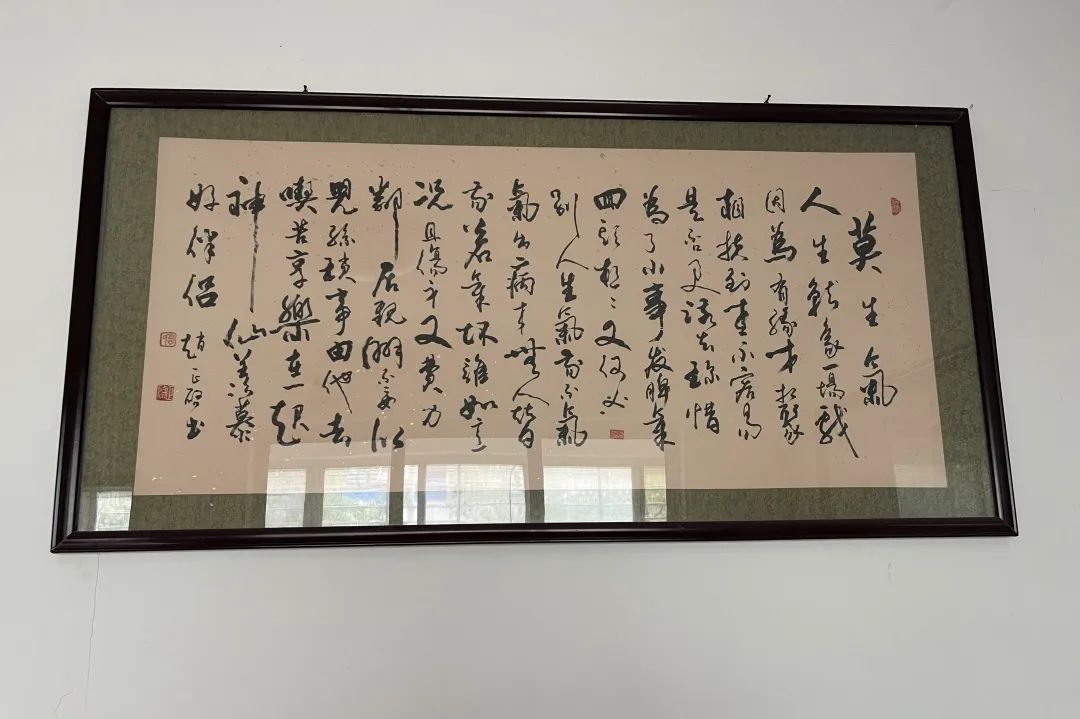 莫生氣
人生就象一場戲
因為有緣才相聚
相扶到老不容易
是否更該去珍惜
為了小事發脾氣
回頭想想又何必
別人生氣我不氣
氣出病來無人替
我若氣坏誰如意
況且傷神又費力
鄰居親朋不要比
兒孫瑣事由他去
喫苦享樂在一起
神仙羨慕
好伴侶
書